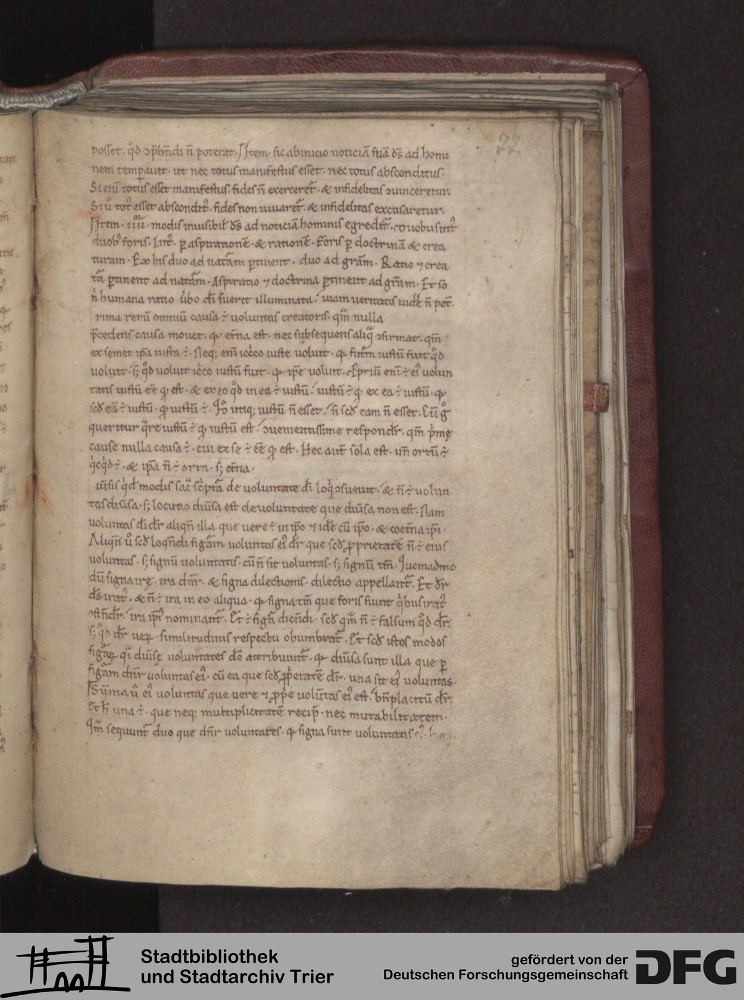 77
posset. qd ↄp̄hn̄di n̄ poterat. Item. sic ab inicio noticiā suā ds̄ ad homi
nem temꝑauit. ut nec totus manifestus esset. nec totus absconditus.
Si eni totus esset manifestus. fides n̄ exerceret᷑. & infidelitas ↄuinceretur.
Si ū tot᷒ esset abscondit᷒. fides non iuuaret᷑. & infidelitas excusaretur.
Item. iiii. modis inuisibil᷒ ds̄ ad noticiā hominis egredit᷑. duobus int᷒
duob᷒ foris. Int᷒. ꝑ aspirationē. & rationē. Foris ꝑ doctrinā & crea
turam. Ex his duo ad natām ꝑtinent. duo ad grām. Ratio ⁊ crea
tā ꝑtinent ad natām. Aspiratio ⁊ doctrina ꝑtinent ad grām. Et iō
n̄ humana ratio uībo dī fuerit illuminata. uiam ueritatis uidē n̄ pot᷑.
rima rerū omniū causa ÷ voluntas creatoris. qm̄ nulla
p̄cedens causa mouet. qꝫ et̄na est. nec subsequens aliq̄ ↄfirmat. qm̄
ex semet ip̄a iusta ÷. Neqꝫ eni iccō iuste voluit. qꝫ fut̄m iustū fuit qd
voluit. sꝫ qd voluit iccō iustū fuit. qꝫ ip̄e voluit. ꝓpriū eni ÷ ei᷒ volun
tatis iustū eē qꝫ est. & ex eo qd in ea ÷ iustū. iustū ÷ qꝫ ex ea ÷ iustū. qꝫ
scd̄ eā ÷ iustū. qꝫ iustū ÷. utiqꝫ iustū n̄ esset. si scd̄ eam n̄ esset. Cū gͦ
queritur qͣre iustū ÷ qꝫ iustū est. ↄuenientissime respondet᷑. qm̄ p̄me
cause nulla causa ÷. cui ex se ÷ eē qꝫ est. Hec aut̄ sola est. un̄ ortū ÷
qͥcqͥd ÷. & ip̄a n̄ ÷ orta. sꝫ et̄na.
qd modis sac̄ sc̄pta de voluntate dī loqͥ ↄsueuit. & n̄ ÷ volun
tas diu̅sa. sꝫ locutio diu̅sa est de voluntate que diu̅sa non est. Nam
voluntas dī dr̄ aliqn̄ illa que vere ÷ in ip̄o ⁊ idē cū ip̄o. & coet̄na ip̄i.
Aliqn̄ ū scd̄ loqn̄di figām voluntas ei᷒ dr̄ que scd̄ ꝓprietatē n̄ ÷ eius
voluntas. sꝫ signū voluntatis. cū n̄ sit voluntas. sꝫ signū tm̄. Quemadmo
dū signa ire. ira dnr̄. & signa dilectionis. dilectio appellant᷑. Et dr̄
ds̄ irat᷒. & n̄ ÷ ira in eo aliqua. qꝫ signa tm̄ que foris fiunt qͥbus irat᷒
ↄstn̄dr̄. ira ip̄i᷒ nominant᷑. Et ÷ figͣ dicn̄di. scd̄ qm̄ n̄ ÷ falsum qd dr̄.
sꝫ qd dr̄ ueꝝ similitudinis respectu obumbrat᷑. Et scd̄ istos modos
figāꝝ qͥ diu̅se voluntates dō attribuunt᷑. qꝫ diu̅sa sunt illa que ꝑ
figām dnr̄ voluntas ei᷒. cū ea que scd̄ ꝓp̄etatē dr̄. una sit ei᷒ voluntas.
Sūma ū ei᷒ voluntas que uere ⁊ ꝓp̄e volūtas ei᷒ est. bn̄placitū dr̄.
Et h̄ una ÷. que neqꝫ multiplicitatē recip̄. nec mutabilitatem.
Qm̄ sequunt᷑ duo que dnr̄ voluntates. qꝫ signa sunt voluntatis
Stadtbibliothek
und Stadtarchiv Trier
gefördert von der
Deutschen Forschungsgemeinschaft
DFG